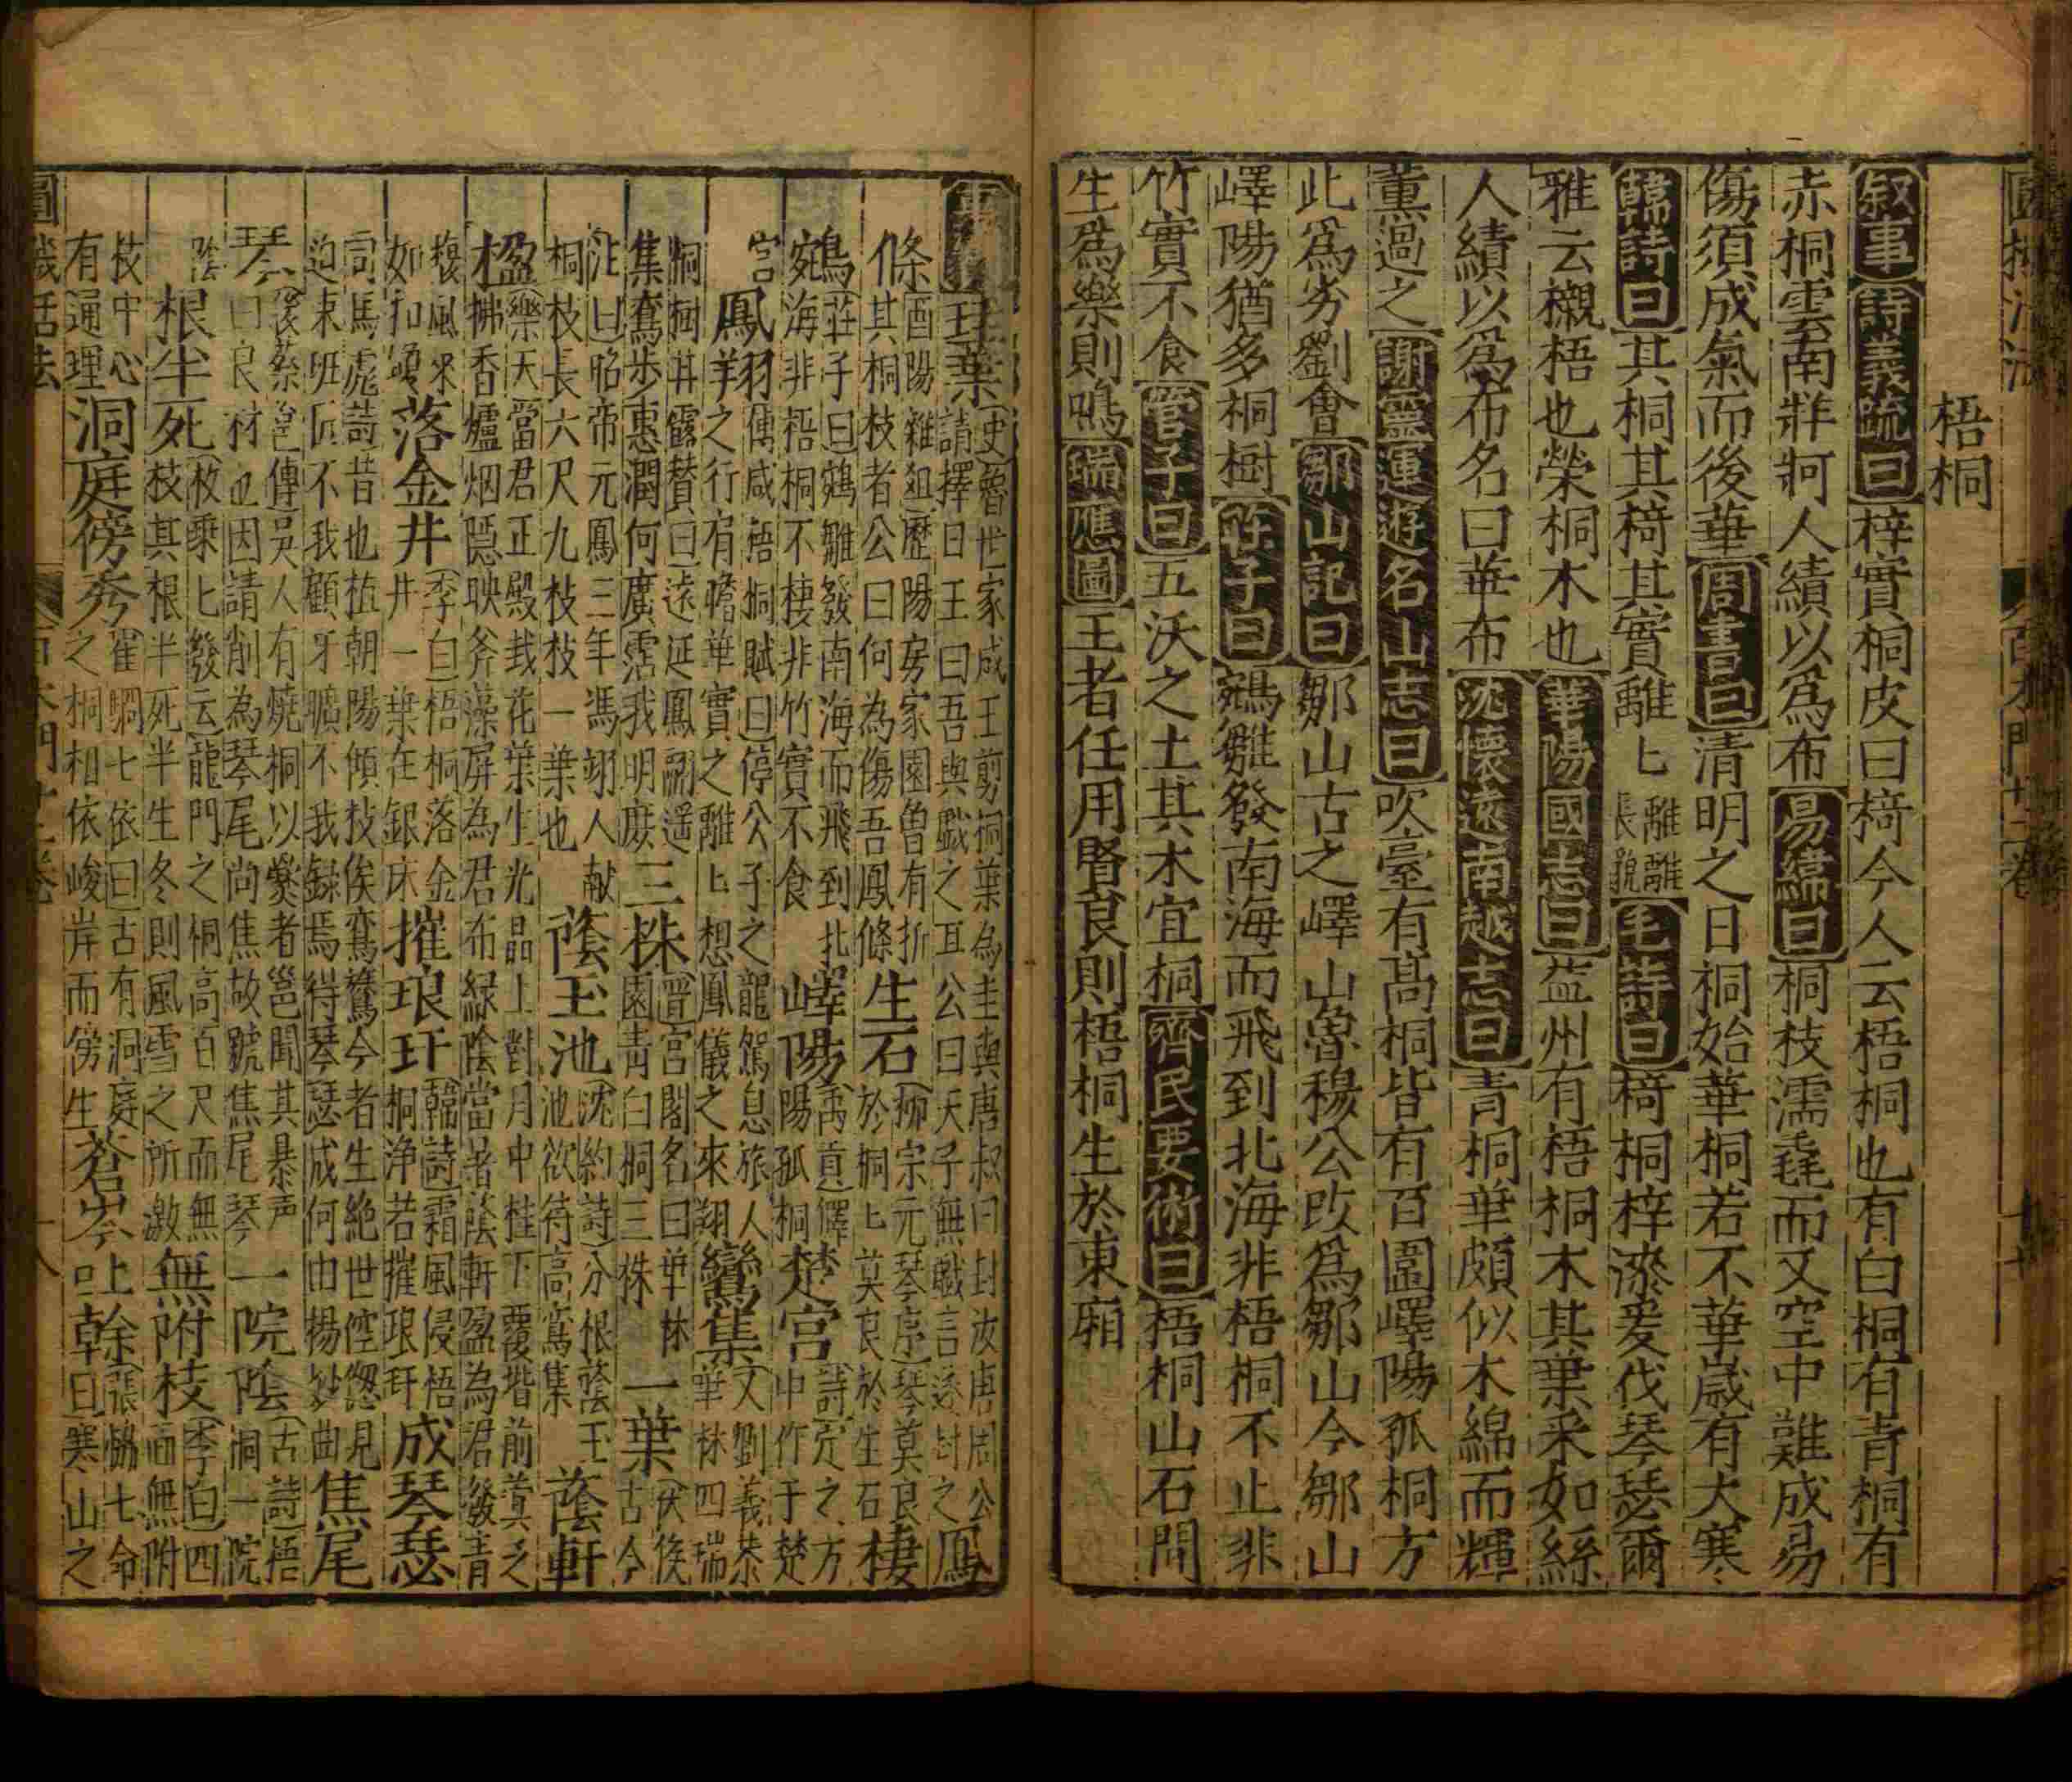 梧桐
叙事 詩義疏曰 梓實桐皮曰椅今人云梧桐也有白桐有青桐有
赤桐雲南牂牁人績以爲布 易緯曰 桐枝濡毳而又空中難成易
傷須成氣而後華 周書曰 清明之日桐始華桐若不華歲有大寒
韓詩曰 其桐其椅其實離匕 離離長貌 毛詩曰 椅桐梓漆爰伐琴瑟爾
雅云櫬梧也榮桐木也 華陽國志曰 益州有梧桐木其葉采如絲
人績以爲布名曰華布 沈懷遠南越志曰 青桐華頗似木綿而輝
薫過之 謝靈運遊名山志曰 吹臺有髙桐皆有百圍嶧陽孤桐方
此爲劣劉會 鄒山記曰 鄒山古之嶧山魯穆公改爲鄒山今鄒山
嶧陽猶多桐樹 莊子曰 鵷雛發南海而飛到北海非梧桐不止非
竹實不食 管子曰 五沃之土其木宜桐 齊民要術曰 梧桐山石間
生爲樂則鳴 瑞應圖 王者任用賢良則梧桐生於東廂
珪葉 史魯世家成王剪桐葉為圭與唐叔曰封汝唐周公
請擇日王曰吾與戲之耳公曰天子無戲言遂封之 鳳
條 酉陽雜俎歷陽房家園曾有折
其桐枝者公曰何為傷吾鳳條 生石 柳宗元琴序琴莫良
於桐匕莫良於生石 棲
鵷 莊子曰鵷雛發南海而飛到北
海非梧桐不棲非竹實不食 嶧陽 禹貢嶧
陽孤桐 楚宮 詩定之方
中作于楚
宮 鳳羽 傅咸梧桐賦曰停公子之龍駕息旅人
羊之行有瞻華實之離匕想鳳儀之來翔 鸞集 文劉義恭
華林四瑞
桐樹甘露贊曰遠延鳳翮遥
集鸞步惠潤何廣霑我明庶 三株 晉宮閣名曰華林
園青白桐三株 一葉 伏侯
古今
注曰昭帝元鳳三年馮翊人献
桐枝長六尺九枝枝一葉也 蔭玉池 沈約詩分根蔭玉
池欲待高鸞集 蔭軒
楹 樂天當君正殿栽花葉生光晶上對月中桂下覆堦前蓂乏
拂香爐烟隠映斧藻屏為君布緑陰當暑蔭軒盈為君發青
穆風來
如扣瓊 落金井 李白梧桐落金
井一葉在銀床 摧琅玕 韓詩霜風侵梧
桐浄若摧琅玕 成琴瑟
司馬彪詩昔也植朝陽傾枝俟鸞鷟今者生絶世倥偬見
迫束班匠不我顧牙曠不我録焉得琴瑟成何由揚妙曲 焦尾
琴 後蔡邕傳吳人有燒桐以爨者邕聞其暴声
曰良材也因請削為琴尾尚焦故號焦尾琴 一院陰 古詩梧
桐一院
陰 根半死 枚乗七發云龍門之桐高百尺而無
枝其根半死半生冬則風雪之所激 無附枝 李白四
面無附
枝中心
有通理 洞庭傍秀 崔駰七依曰古有洞庭
之桐相依峻岸而傍生 蒼岑上幹 張協七命
曰寒山之